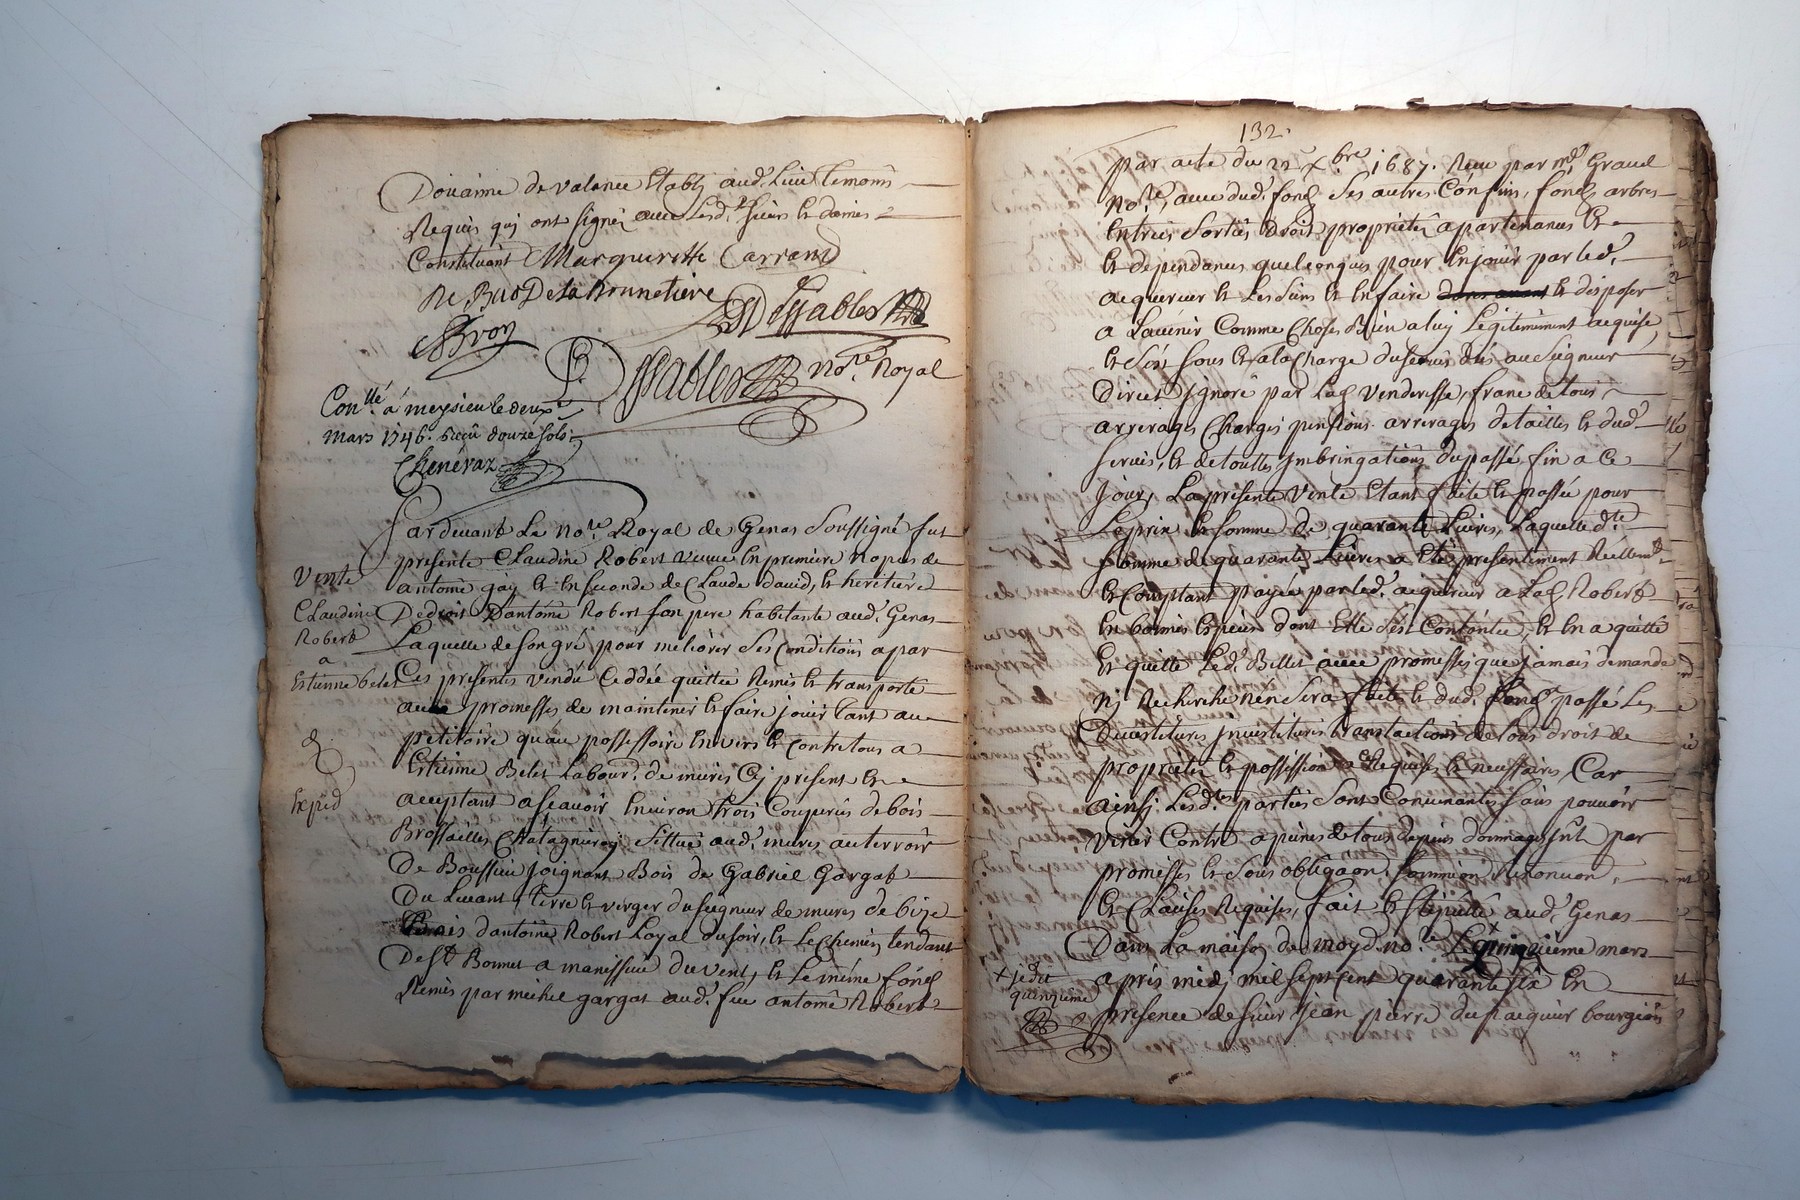 Douanne de valance Etably aud. Lieu temoins
Requis quj ont signés avec lesd. sieur et dames
Constituant Margueritte Carrand
De Bard De La Bonnetiere
Dessables
Bron
Dessables no.re Royal
Con.llé a meysieu le deux
mars 1746. Reçu douze sols
Chenévaz
Pardevant Le No.re Royal de Genas Soussigné fut
presente Claudine Robert veuve En premiere nopces de
Vente
antoine gay et En seconde de Claude david, et heritiere
Claudine
De droit D'antoine Robert son pere habitante aud. Genas
Robert
Laquelle de son gré pour meliorer Ses Conditions a par
a
Estienne belet
Ces presentes vendu Ceddée quittée Remis et transporté
avec promesses de maintenir et faire jouir tant au
petitoire qu'au possessoire Envers et contre tous a
Estienne Belet Labour. de mures Cy present et
Exped
acceptant ascavoir Environ trois Couperés de bois
Brossailles Chatagneray Sittué aud. mures au terroir
De Boussieu joignant Bois de Gabriel Gargat
Du Levant, terre et verger du seigneur de mures de bize
Bois d'antoine Robert Loyal du soir, et le Chemin tendant
De St Bonnet a manissieu du vent, et Le même fonds
Remis par michel gargat aud. feu antoine Robert
132.
par acte du 22 xbre 1687. Reçu par me Gravel
No.re, avec dud. fonds Ses autres Confins, fonds arbres
Entrées Sorties Droit proprietés apartenances Et
et dependances quelconques pour En jouir par led.
aquereur et Les Siens et En faire et disposer
a L'avenir Comme Choses Bien a luy Legitimement aquise,
et C'est Sous et a la Charge du servis dûs au Seigneur
Direct Ignoré par Lad. Venderesse, franc de tous
arrerages Charges pensions arrerages de tailles et dud.
servis, et de touttes Imbringations du passé fin a Ce
jour, La presente Vente Etant faite et passée pour
Le prix et Somme de quarante Livres, Laquelle d.te
Somme de quarante Livres a Eté presentement Réellem.t
et Comptant payée par led. aquereur a Lad. Robert
En bonnes Espèces dont Elle S'est Contentée, et En a quitté
et quitte Led. Billet avec promesses que jamais demande
Nj Recherche n'en Sera faite et dud. fonds passé Les
Devestitures Investitures translactions de tous droit de
proprieté et possession Requises et necessaires, Car
ainsj Lesd.tes parties Sont Convenantes Sans pouvoir
Venir Contre a peines de tous depens dommages Int. par
promesses et Sous obligaon, Soummion Renonon,
et Clauses Requises, fait et Stipullé aud. Genas
Dans La maison de moyd. no.re Le quinzieme mars
+ jedit
quinzieme
apres midj mil sept cent quarante six En
presence de sieur Jean pierre bourgeois